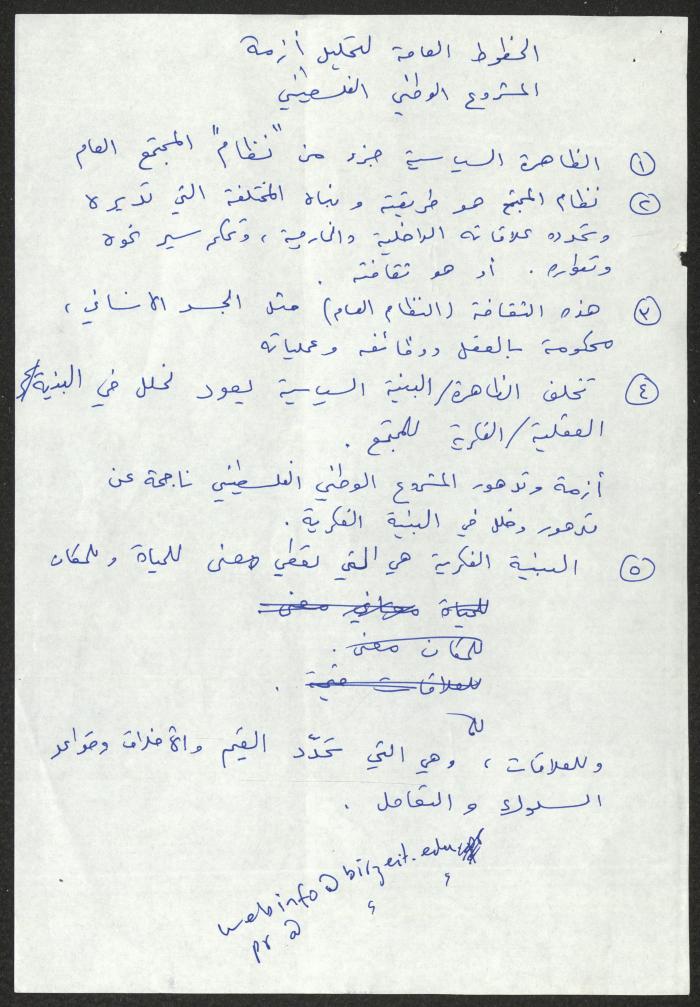 الخطوط العامة لتحليل أزمة
المشروع الوطني الفلسطيني
١ الظاهرة السياسية جزء من "نظام" المجتمع العام
٢ نظام المجتمع هو طريقته وبناه المختلفة التي تديره
وتحدد علاقاته الداخلية والخارجية، وتحكم سير نموه
وتطوره. أو هو ثقافته.
٣ هذه الثقافة (النظام العام) مثل الجسد الانساني،
محكومة بالعقل ووظائفه وعملياته
٤ تخلف الظاهرة/البنية السياسية يعود لخلل في البنية/
العقلية/الفكرية للمجتمع.
أزمة وتدهور المشروع الوطني الفلسطيني ناجمة عن
تدهور وخلل في البنية الفكرية.
٥ البنية الفكرية هي التي تعطي معنى للحياة وللمكان
للحياة معنى
للمكان معنى.
للعلاقات قيمة.
لل
وللعلاقات، وهي التي تحدّد القيم والأخلاق وقواعد
السلوك والتعامل.
webinfo@birzeit.edu
pr @ , ,